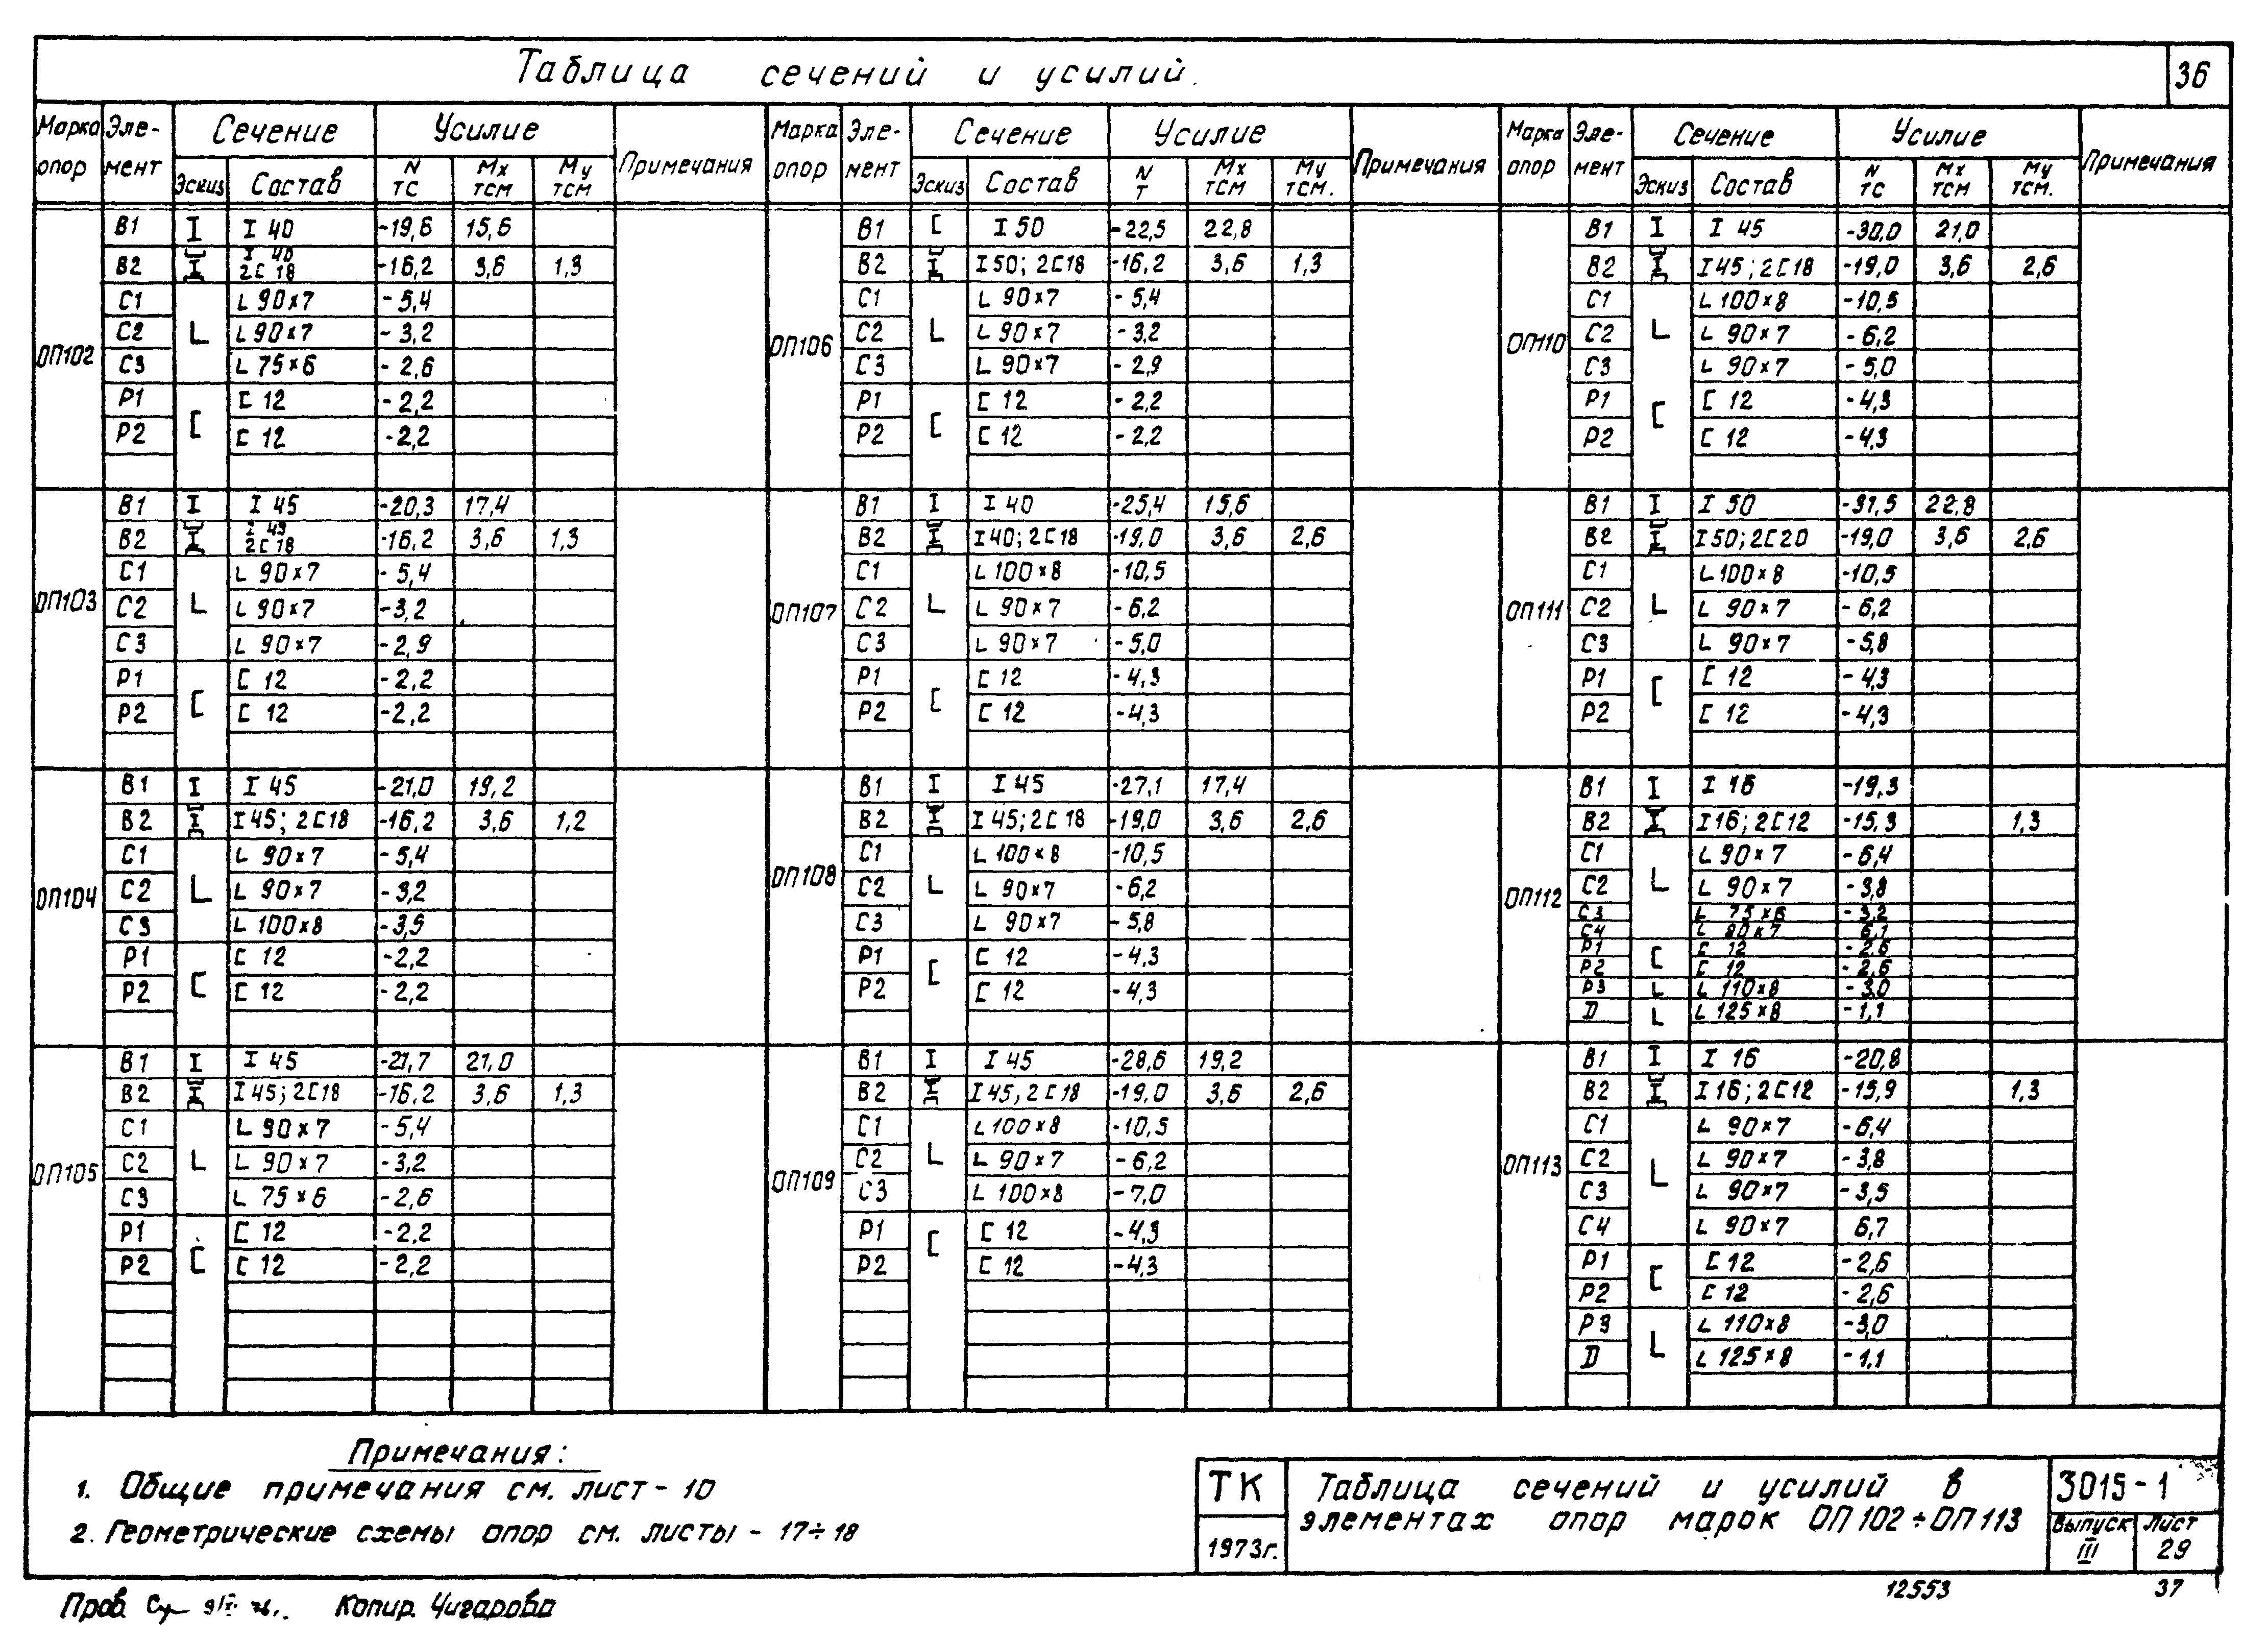 Таблица сечений и усилий.
36
Марка опор Эле-мент Сечение Усилие Примечания Марка опор Эле-мент Сечение Усилие Примечания Марка опор Эле-мент Сечение Усилие Примечания
Эскиз Состав N тс Mx тсм My тсм Эскиз Состав N т Mx тсм My тсм. Эскиз Состав N тс Mx тсм My тсм.
ОП102
В1 I I 40 -19,6 15,6
В2 I 40 2[18 -16,2 3,6 1,3
С1 L 90×7 -5,4
С2 L L 90×7 -3,2
С3 L 75×6 -2,6
Р1 [ 12 -2,2
Р2 [ [ 12 -2,2
ОП103
В1 I I 45 -20,3 17,4
В2 I 45 2[18 -16,2 3,6 1,3
С1 L 90×7 -5,4
С2 L L 90×7 -3,2
С3 L 90×7 -2,9
Р1 [ 12 -2,2
Р2 [ [ 12 -2,2
ОП104
В1 I I 45 -21,0 19,2
В2 I 45; 2[18 -16,2 3,6 1,2
С1 L 90×7 -5,4
С2 L L 90×7 -3,2
С3 L 100×8 -3,5
Р1 [ 12 -2,2
Р2 [ [ 12 -2,2
ОП105
В1 I I 45 -21,7 21,0
В2 I 45; 2[18 -16,2 3,6 1,3
С1 L 90×7 -5,4
С2 L L 90×7 -3,2
С3 L 75×6 -2,6
Р1 [ 12 -2,2
Р2 [ [ 12 -2,2
ОП106
В1 [ I 50 -22,5 22,8
В2 I 50; 2[18 -16,2 3,6 1,3
С1 L 90×7 -5,4
С2 L L 90×7 -3,2
С3 L 90×7 -2,9
Р1 [ 12 -2,2
Р2 [ [ 12 -2,2
ОП107
В1 I I 40 -25,4 15,6
В2 I 40; 2[18 -19,0 3,6 2,6
С1 L 100×8 -10,5
С2 L L 90×7 -6,2
С3 L 90×7 -5,0
Р1 [ 12 -4,3
Р2 [ [ 12 -4,3
ОП108
В1 I I 45 -27,1 17,4
В2 I 45; 2[18 -19,0 3,6 2,6
С1 L 100×8 -10,5
С2 L L 90×7 -6,2
С3 L 90×7 -5,8
Р1 [ 12 -4,3
Р2 [ [ 12 -4,3
ОП109
В1 I I 45 -28,6 19,2
В2 I 45; 2[18 -19,0 3,6 2,6
С1 L 100×8 -10,5
С2 L L 90×7 -6,2
С3 L 100×8 -7,0
Р1 [ 12 -4,3
Р2 [ [ 12 -4,3
ОП110
В1 I I 45 -30,0 21,0
В2 I 45; 2[18 -19,0 3,6 2,6
С1 L 100×8 -10,5
С2 L L 90×7 -6,2
С3 L 90×7 -5,0
Р1 [ 12 -4,3
Р2 [ [ 12 -4,3
ОП111
В1 I I 50 -31,5 22,8
В2 I 50; 2[20 -19,0 3,6 2,6
С1 L 100×8 -10,5
С2 L L 90×7 -6,2
С3 L 90×7 -5,8
Р1 [ 12 -4,3
Р2 [ [ 12 -4,3
ОП112
В1 I I 16 -19,3
В2 I 16; 2[12 -15,3 1,3
С1 L 90×7 -6,4
С2 L L 90×7 -3,8
С3 L 75×6 -3,2
С4 L 90×7 6,1
Р1 [ 12 -2,6
Р2 [ [ 12 -2,6
Р3 L L 110×8 -3,0
D L L 125×8 -1,1
ОП113
В1 I I 16 -20,8
В2 I 16; 2[12 -15,9 1,3
С1 L 90×7 -6,4
С2 L 90×7 -3,8
С3 L L 90×7 -3,5
С4 L 90×7 6,7
Р1 [ 12 -2,6
Р2 [ [ 12 -2,6
Р3 L 110×8 -3,0
D L L 125×8 -1,1
Примечания:
1. Общие примечания см. лист-10
2. Геометрические схемы опор см. листы-17÷18
ТК
1973г.
Таблица сечений и усилий в
элементах опор марок ОП102÷ОП113
3015-1
Выпуск III
Лист 29
Пров.
Копир. Чигарова
12553
37